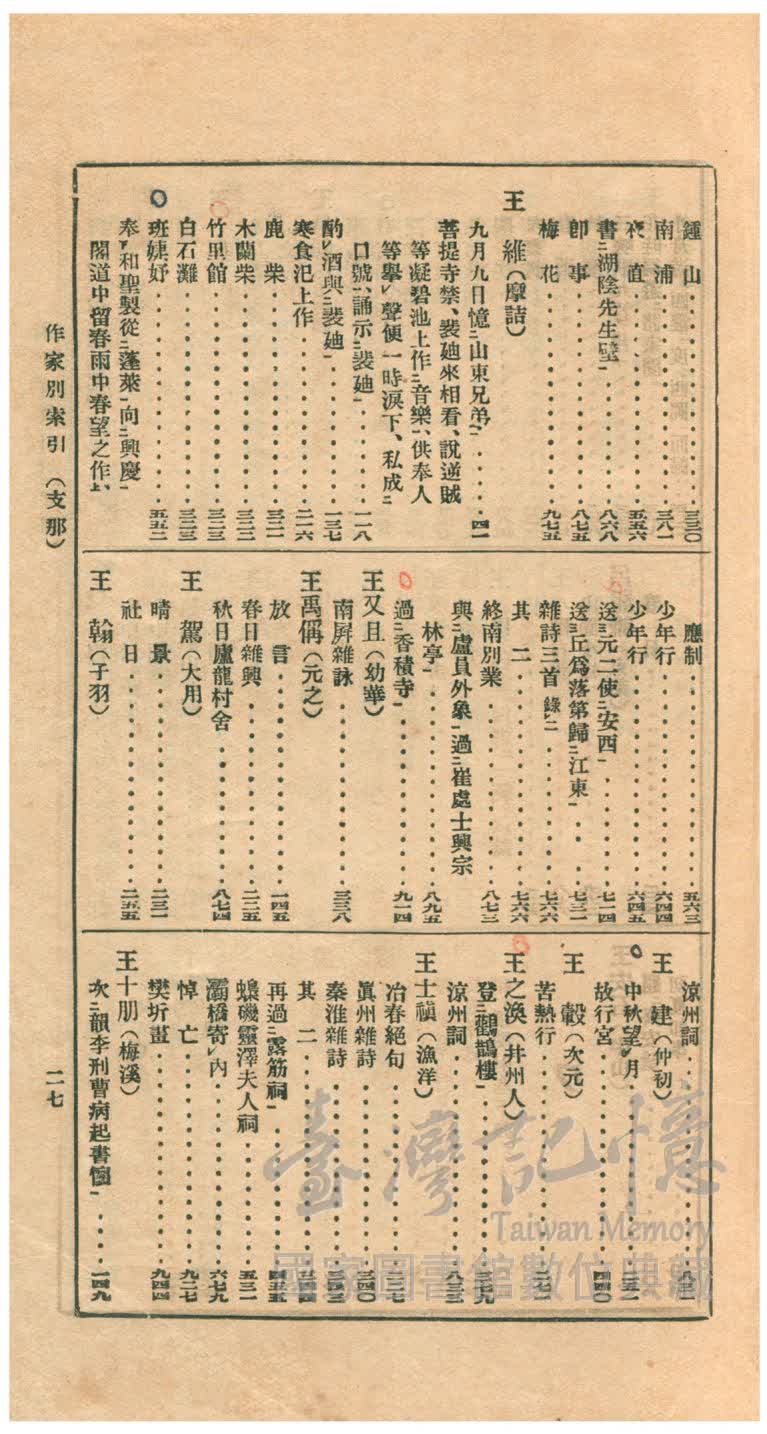 鍾山‥‥三三〇
南浦‥‥三八一
夜直‥‥五五六
書㆓湖陰先生壁㆒‥‥八六八
卽事‥‥八七五
梅花‥‥九七五
王維(摩詰)
九月九日憶㆓山東兄弟㆒‥‥四一
菩提寺禁、裴廸來相看、說逆賊
等凝碧池上作㆓音樂㆒、供奉人
等擧㆑聲便一時淚下、私成㆓
口號㆒、誦示㆓裴廸㆒‥‥一一八
酌㆑酒與㆓裴廸㆒‥‥一三七
寒食汜上作‥‥二一六
鹿柴‥‥三二一
木蘭柴‥‥三二二
竹里館‥‥三二三
白石灘‥‥三二三
班婕妤‥‥五五二
奉㆘和聖製從㆓蓬萊㆒向㆓興慶㆒
閣道中留春雨中春望之作㆖、
應制‥‥五六三
少年行‥‥六四四
少年行‥‥六四五
送㆔元二使㆓安西㆒‥‥七一四
送㆔丘爲落第歸㆓江東㆒‥‥七三一
雜詩三首 錄㆑二‥‥七六六
其二‥‥七六六
終南別業‥‥八七三
與㆓盧員外象㆒過㆓崔處士興宗
林亭㆒‥‥八九五
過㆓香積寺㆒‥‥九一四
王又且(幼華)
南屛雜詠‥‥三三八
王禹偁(元之)
放言‥‥一四五
春日雜興‥‥二二五
秋日廬龍村舍‥‥八七四
王駕(大用)
晴景‥‥二三一
社日‥‥二五五
王翰(子羽)
涼州詞‥‥
王建(仲初)
中秋望㆑月‥‥
故行宮‥‥四四〇
王轂(次元)
苦熱行‥‥
王之渙(幷州人)
登㆓鸛鵲樓㆒‥‥三七九
涼州詞‥‥八三三
王士禛(漁洋)
冶春絕句‥‥
眞州雜詩‥‥三四〇
秦淮雜詩‥‥三四三
其二‥‥三四四
再過㆓露筋祠㆒‥‥四五五
蟂磯靈澤夫人祠‥‥五三一
灞橋寄㆑內‥‥六七九
悼亡‥‥九二七
樊圻畫‥‥九四四
王十朋(梅溪)
次㆓韻李刑曹病起書懷㆒‥‥一四九
作家別索引(支那)
二七
臺灣記憶
Taiwan Memory
國家圖書館數位典藏